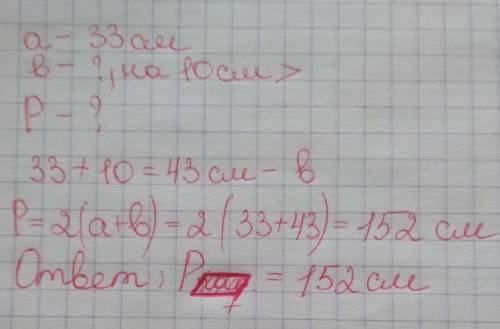 a - 33 см
в - ?, на 10 см >
P - ?
33 + 10 = 43 см - в
P = 2(a+в) = 2(33+43) = 152 см
Ответ: P = 152 см